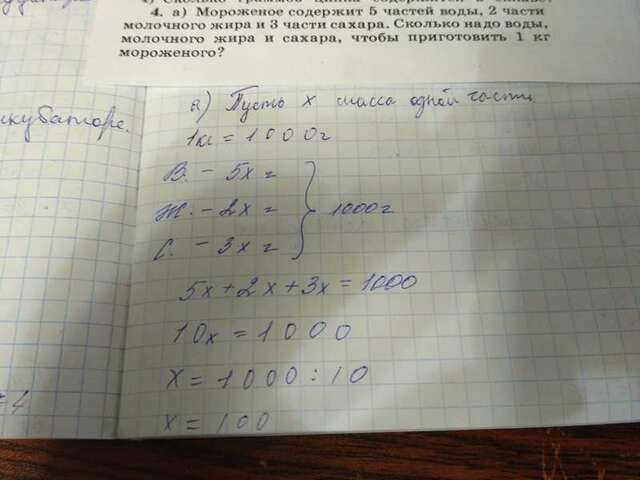 4. а) Мороженое содержит 5 частей воды, 2 части
молочного жира и 3 части сахара. Сколько надо воды,
молочного жира и сахара, чтобы приготовить 1 кг
мороженого?
а) Пусть х масса одной части.
1кг = 1000г
В. - 5х г
Ж. - 2х г
С. - 3х г
1000г
5х+2х+3х=1000
10х=1000
х=1000:10
х=100
кубаторе.
=4